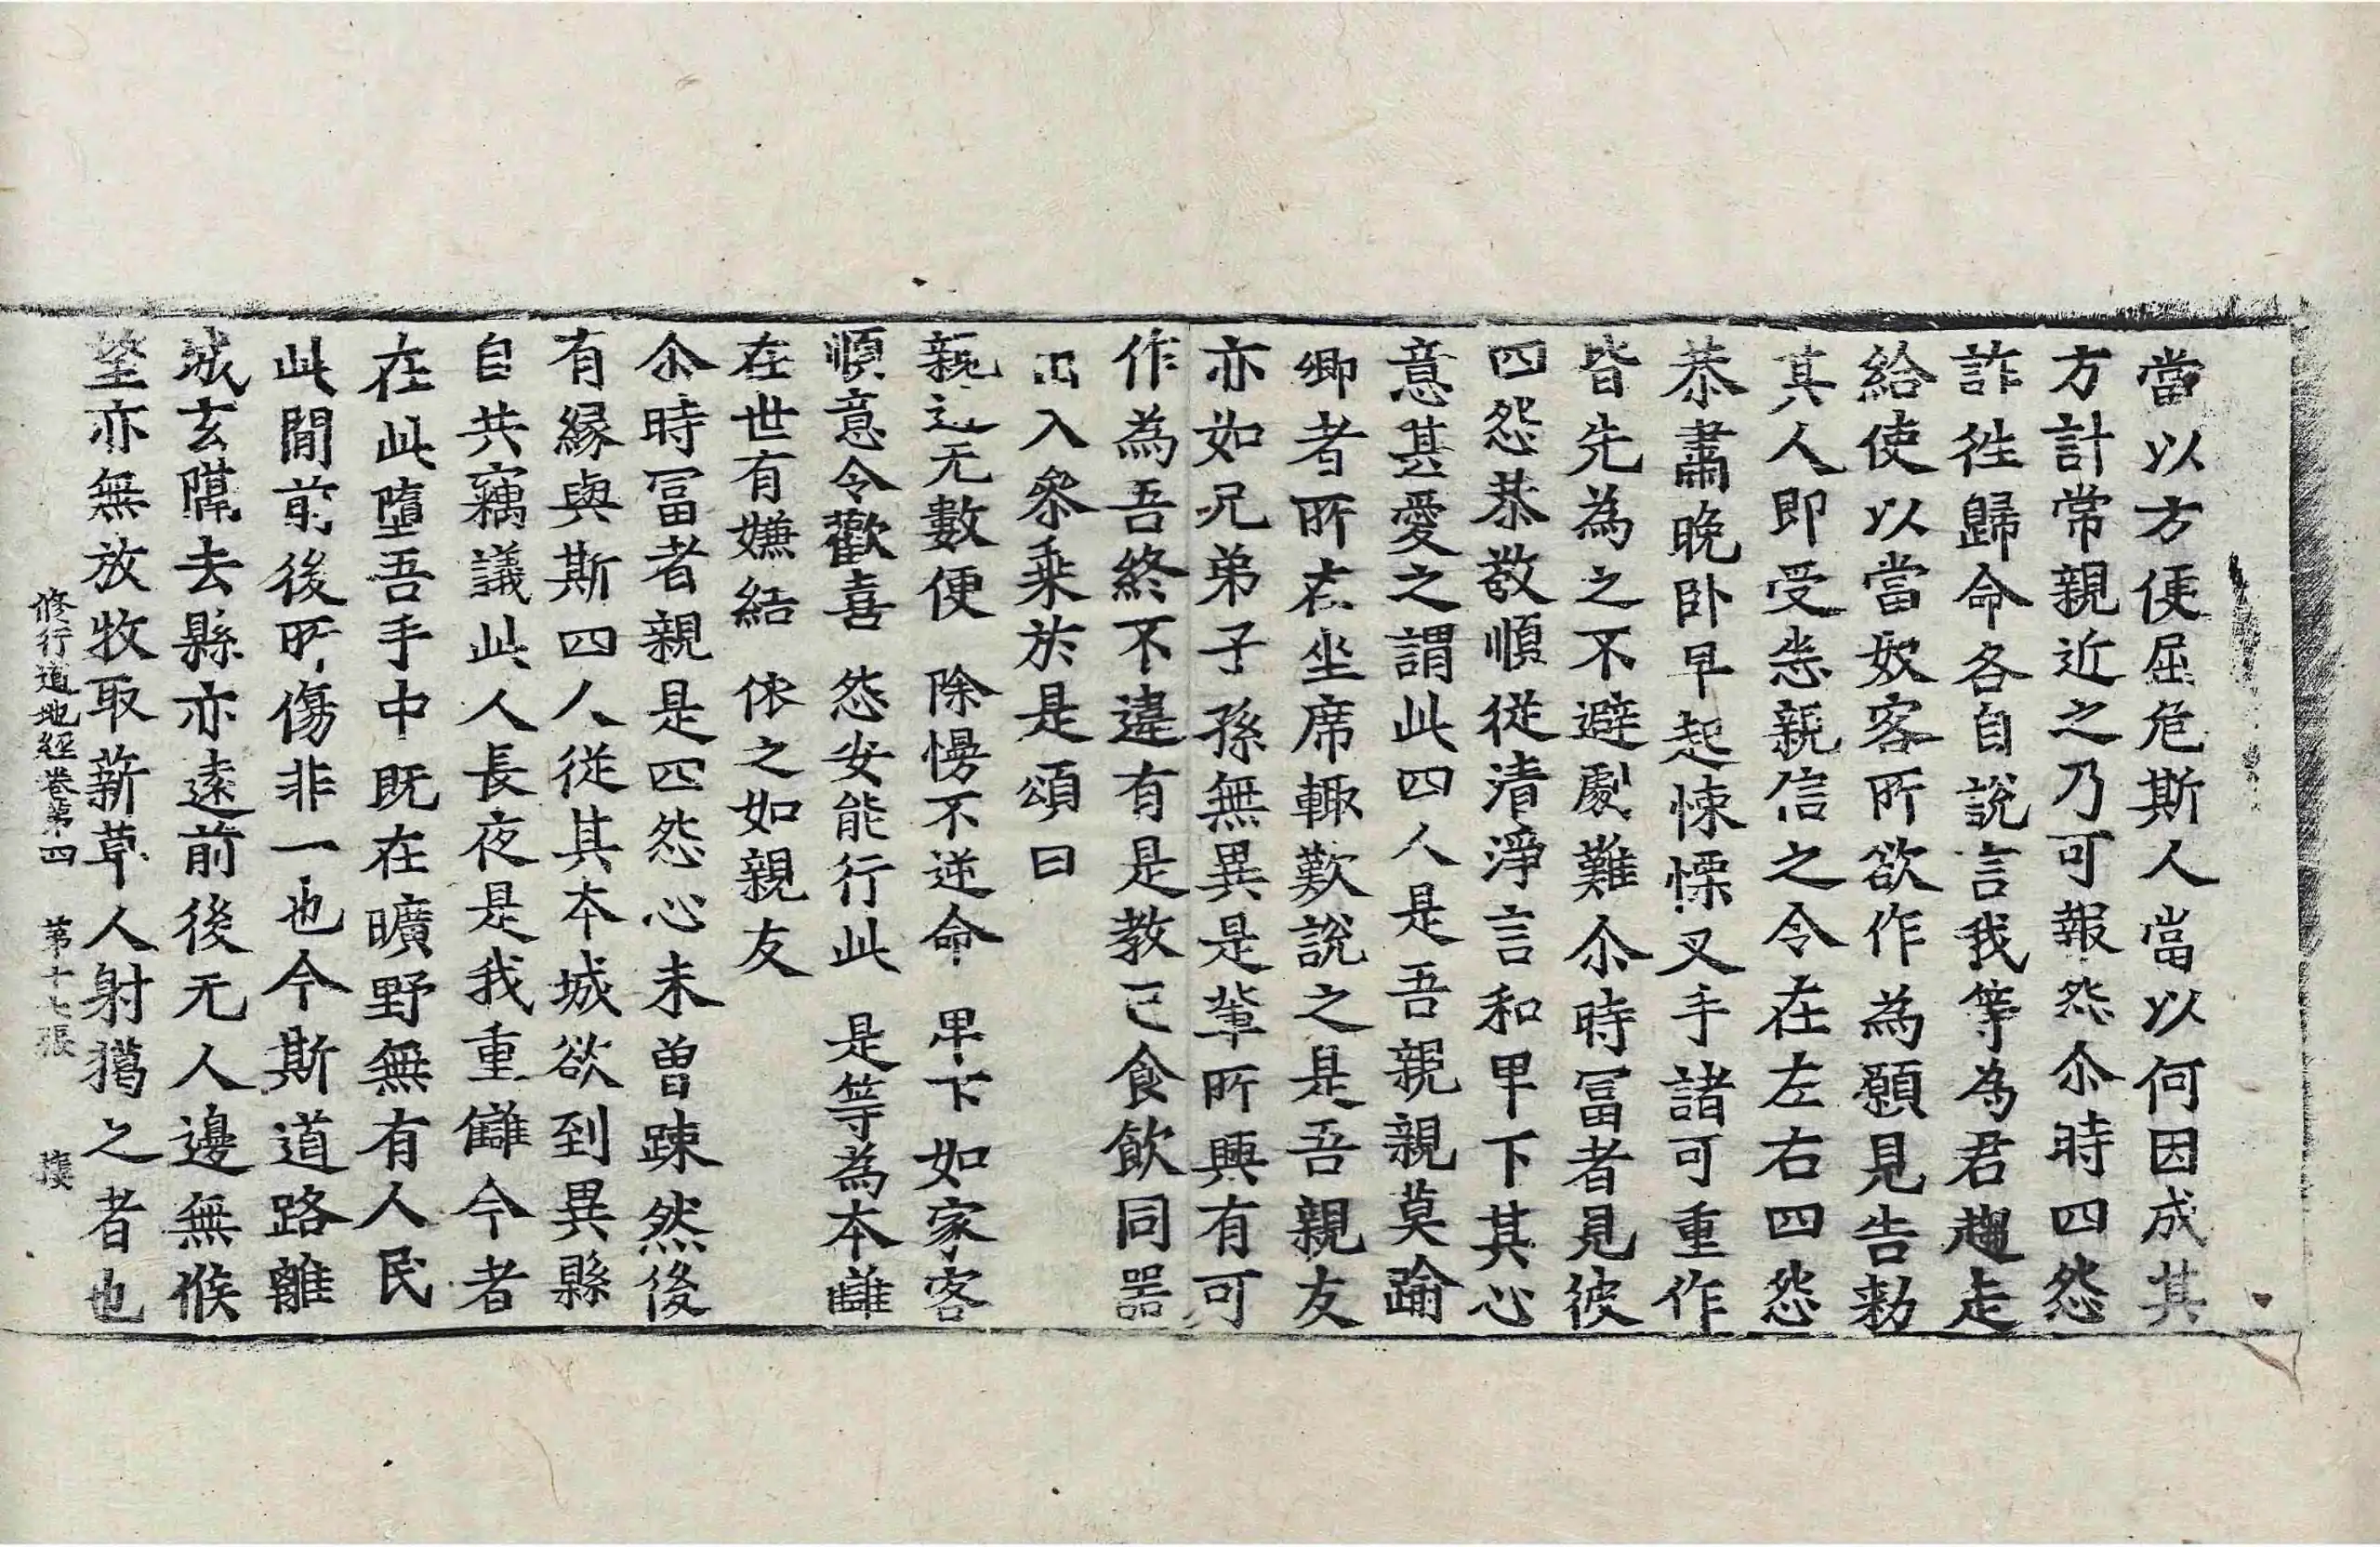 當以方便屈危斯人當以何因成其
方計常親近之乃可報怨尒時四怨
詐徃歸命各自說言我等為君趨走
給使以當奴客所欲作為願見告勑
其人即受恣親信之令在左右四怨
恭肅晚卧早起悚慄叉手諸可重作
皆先為之不避劇難尒時冨者見彼
四怨恭敬順從清淨言和卑下其心
意甚愛之謂此四人是吾親親莫踰
卿者所在坐席輙歎說之是吾親友
亦如兄弟子孫無異是輩所興有可
作為吾終不違有是教已食飲同器
出入參乗於是頌曰
親近无數便　除慢不逆命　卑下如家客
順意令歡喜　怨安能行此　是等為本讎
在世有嫌結　依之如親友
尒時冨者親是四怨心未曽踈然後
有縁與斯四人從其本城欲到異縣
自共竊議此人長夜是我重讎今者
在此墮吾手中既在曠野無有人民
此閒前後所傷非一也今斯道路離
城玄隔去縣亦遠前後无人邊無候
望亦無放牧取薪草人射獦之者也
修行道地經卷第四　第十七張